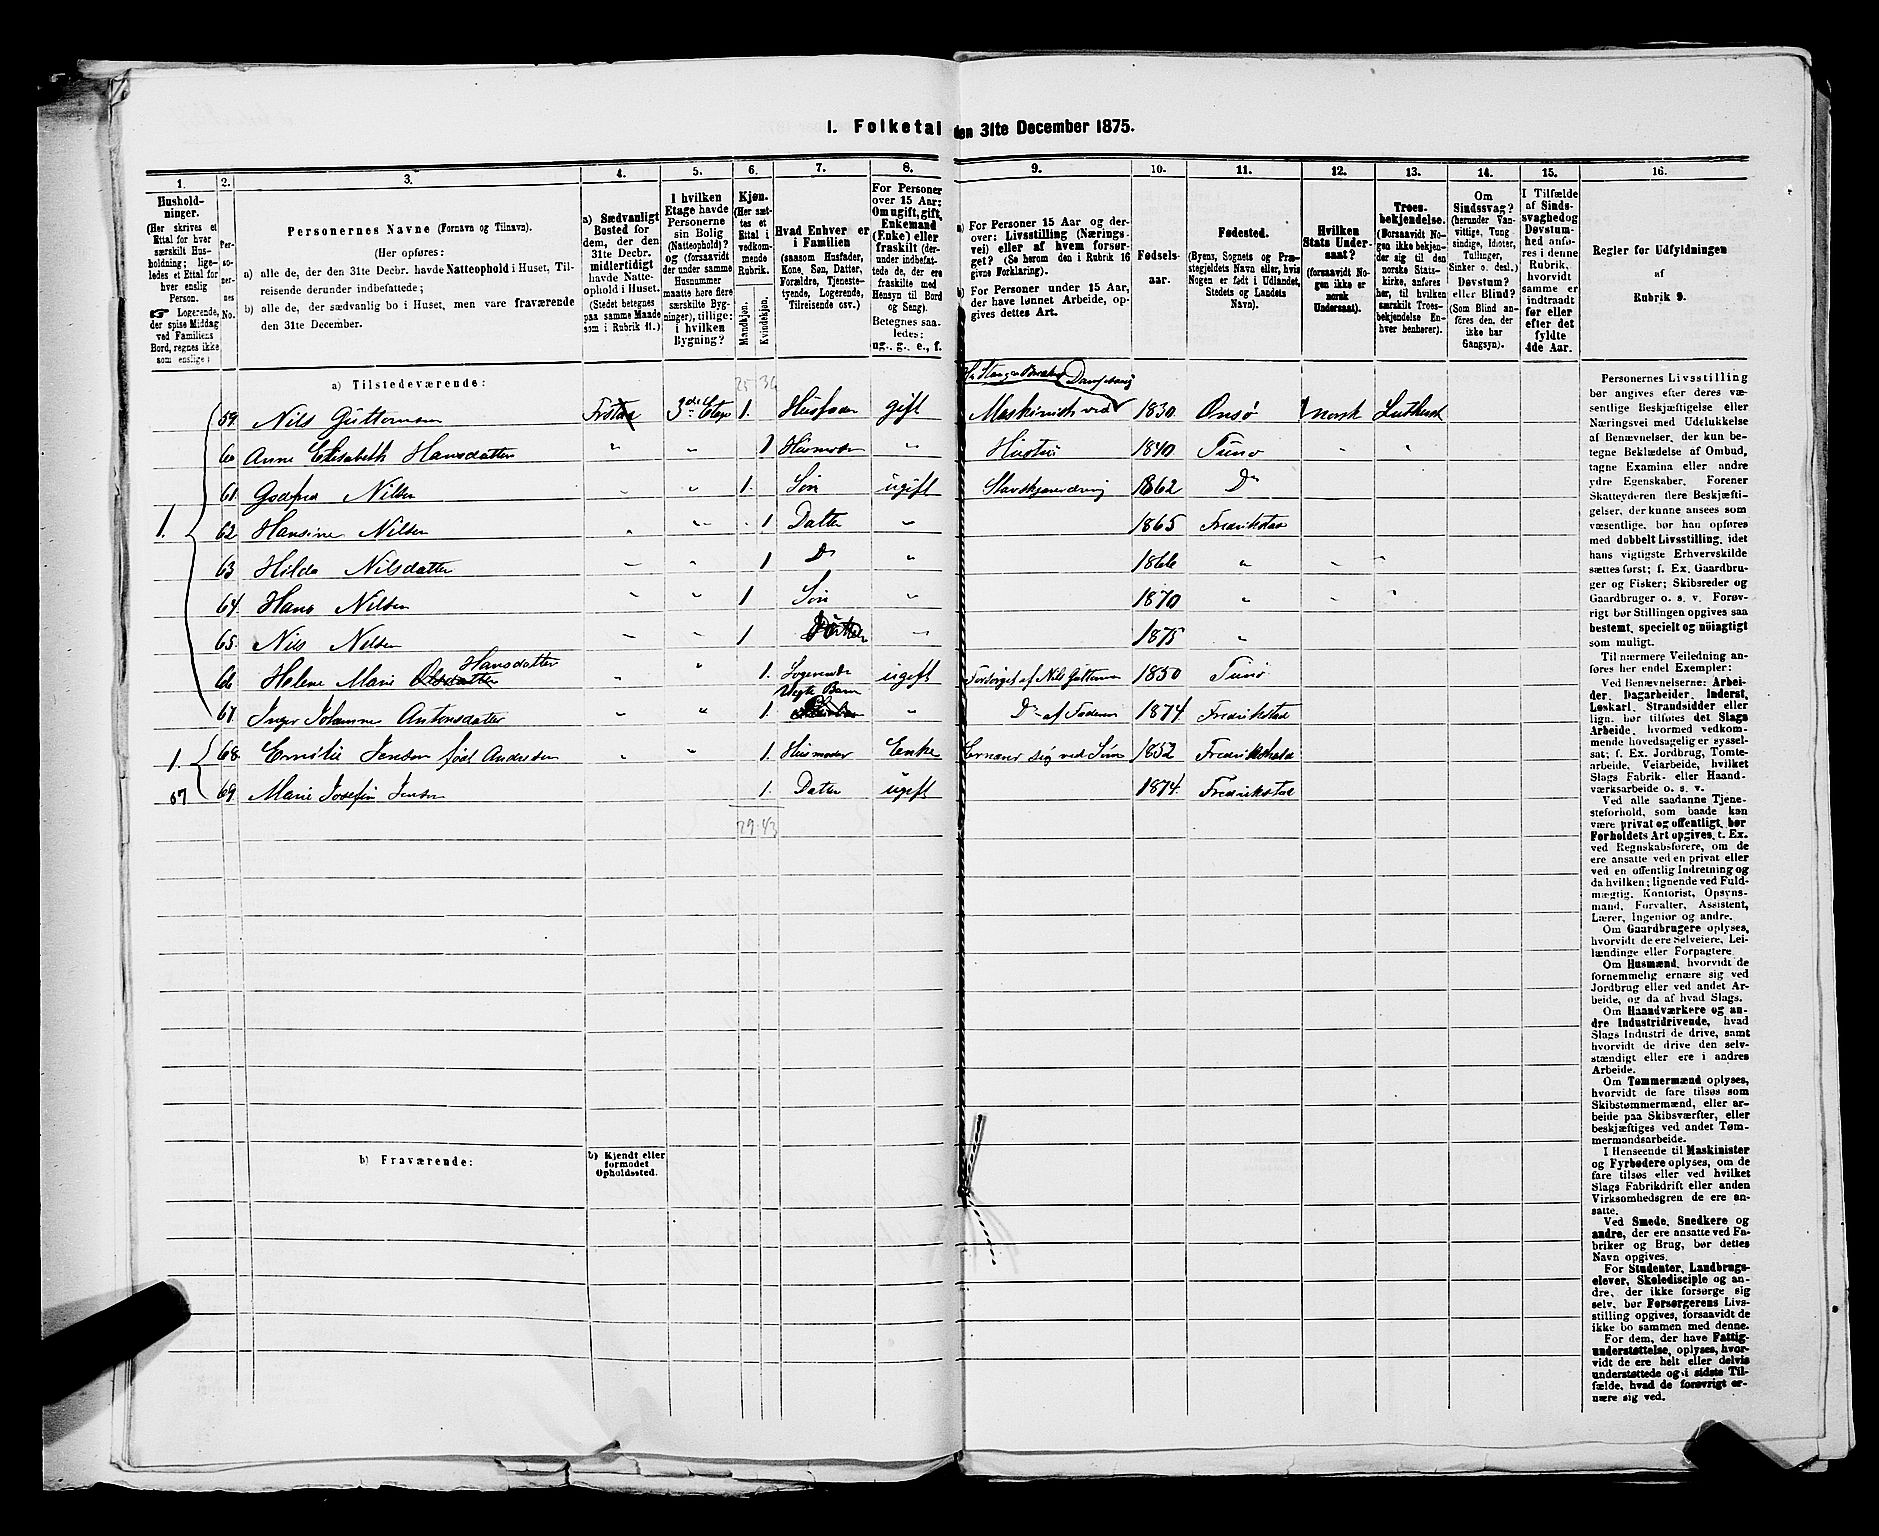 I. Folketal den 31te December 1875.
1. 2. 3. 4. 5. 6. 7. 8. 9. 10. 11. 12. 13. 14. 15. 16.
Hushold-
ninger.
(Her skrives et
Ettal for hver
særskilt Hus-
holdning; lige-
ledes et Ettal for
hver enslig
Person.
☞ Logerende,
der spise Middag
ved Familiens
Bord, regnes ikke
som enslige)
Per-
so-
ner-
nes
No.
Personernes Navne (Fornavn og Tilnavn).
(Her opføres:
a) alle de, der den 31te Decbr. havde Natteophold i Huset, Til-
reisende derunder indbefattede;
b) alle de, der sædvanlig bo i Huset, men vare fraværende
den 31te December.
a) Sædvanligt
Bosted for
dem, der den
31te Decbr.
midlertidigt
havde Natte-
ophold i Huset.
(Stedet betegnes
paa samme Maade
som i Rubrik 11.)
I hvilken
Etage havde
Personerne
sin Bolig
(Natteophold)?
og (forsaavidt
der under samme
Husnummer
maatte høre flere
særskilte Byg-
ninger), tillige:
i hvilken
Bygning?
Kjøn.
(Her sæt-
tes et
Ettal i
vedkom-
mende
Rubrik.
Mandkjøn.
Kvindekjøn.
Hvad Enhver er
i Familien
(saasom Husfader,
Kone, Søn, Datter,
Forældre, Tjeneste-
tyende, Logerende,
Tilreisende osv.)
For Personer
over 15 Aar:
Om ugift, gift,
Enkemand
(Enke) eller
fraskilt (der-
under indbefat-
tede de, der ere
fraskilte med
Hensyn til Bord
og Seng).
Betegnes saa-
ledes:
ug., g., e., f.
a) For Personer 15 Aar og der-
over: Livsstilling (Nærings-
vei) eller af hvem forsør-
get? (Se herom den i Rubrik 16
givne Forklaring).
b) For Personer under 15 Aar,
der have lønnet Arbeide, op-
gives dettes Art.
Fødsels-
aar.
Fødested.
(Byens, Sognets og Præ-
stegjeldets Navn eller, hvis
Nogen er født i Udlandet,
Stedets og Landets
Navn).
Hvilken
Stats Under-
saat?
(forsaavidt No-
gen ikke er
norsk
Undersaat).
Troes-
bekjendelse.
(Forsaavidt No-
gen ikke bekjen-
der sig til den
norske Stats-
kirke, anføres
her, til hvilken
særskilt Troes-
bekjendelse En-
hver henhører).
Om
Sindssvag?
(herunder Van-
vittige, Tung-
sindige, Idioter,
Tullinger,
Sinker o. desl.)
Døvstum?
eller Blind?
(Som Blind an-
føres den, der
ikke har
Gangsyn).
I Tilfælde
af Sinds-
svaghed og
Døvstum-
hed anfø-
res i denne
Rubrik,
hvorvidt
samme er
indtraadt
før eller
efter det
fyldte
4de Aar.
Regler for Udfyldningen
af
Rubrik 9.
a) Tilstedeværende:
25 36
59. Nils Guttormsen 3de Etage 1. Husfader gift Maskinist ved Dampsaug 1830 Onsø norsk Luthersk
60 Anne Elisabeth Hansdatter " " 1 Husmoder " Hustru 1840 Tunø " "
61. Godfred Nilsen " " 1. Søn ugift 1862 Do
1. 62. Hansine Nilsen " " 1 Datter " 1865 Fredrikstad
63 Hilda Nilsdatter " " 1 Do " 1866 " " "
64. Hans Nilsen " " 1 Søn " 1870 " " "
65. Nils Nilsen " " 1 " 1875 "
66. Helene Marie Hansdatter " " 1. Logerende ugift Forsørget af Nils Guttormsen 1850 Tunø
67. Inger Johanne Antonsdatter " " 1. Uegte Barn " Do af Faderen 1874. Fredrikstad
1. 68. Emilie Jensen født Andersen " " 1. Husmoder Enke Ernærer sig ved Søm 1852 Fredrikshald
67 69. Marie Josefine Jensen 1. Datter ugift 1874. Fredrikstad
29 43
b) Fraværende:
b) Kjendt eller
formodet
Opholdssted.
Personernes Livsstilling
bør angives efter deres væ-
sentlige Beskjæftigelse eller
Næringsvei med Udelukkelse
af Benævnelser, der kun be-
tegne Beklædelse af Ombud,
tagne Examina eller andre
ydre Egenskaber. Forener
Skatteyderen flere Beskjæfti-
gelser, der kunne ansees som
væsentlige, bør han opføres
med dobbelt Livsstilling, idet
hans vigtigste Erhvervskilde
sættes først; f. Ex. Gaardbru-
ger og Fisker; Skibsreder og
Gaardbruger o. s. v. Forøv-
rigt bør Stillingen opgives saa
bestemt, specielt og nøiagtigt
som muligt.
Til nærmere Veiledning an-
føres her endel Exempler:
Ved Benævnelserne: Arbei-
der, Dagarbeider, Inderst,
Løskarl, Strandsidder eller
lign. bør tilføies det Slags
Arbeide, hvormed vedkom-
mende hovedsagelig er syssel-
sat; f. Ex. Jordbrug, Tomte-
arbeide, Veiarbeide, hvilket
Slags Fabrik- eller Haand-
værksarbeide o. s. v.
Ved alle saadanne Tjene-
steforhold, som baade kan
være privat og offentligt, bør
Forholdets Art opgives, t. Ex.
ved Regnskabsførere, om de
ere ansatte ved en privat eller
ved en offentlig Indretning og
da hvilken; lignende ved Fuld-
mægtig, Kontorist, Opsyns-
mand, Forvalter, Assistent,
Lærer, Ingeniør og andre.
Om Gaardbrugere oplyses,
hvorvidt de ere Selveiere, Lei-
lændinge eller Forpagtere.
Om Husmænd, hvorvidt de
fornemmelig ernære sig ved
Jordbrug eller ved andet Ar-
beide, og da af hvad Slags.
Om Haandværkere og an-
dre Industridrivende, hvad
Slags Industri de drive, samt
hvorvidt de drive den selv-
stændigt eller ere i andres
Arbeide.
Om Tømmermænd oplyses,
hvorvidt de fare tilsøs som
Skibstømmermænd, eller ar-
beide paa Skibsværfter, eller
beskjæftiges ved andet Tøm-
mermandsarbeide.
I Henseende til Maskinister
og Fyrbødere oplyses, om de
fare tilsøs eller ved hvilket
Slags Fabrikdrift eller anden
Virksomhedsgren de ere an-
satte.
Ved Smede, Snedkere og
andre, der ere ansatte ved Fa-
briker og Brug, bør dettes
Navn opgives.
For Studenter, Landbrugs-
elever, Skoledisciple og an-
dre, der ikke forsørge sig
selv, bør Forsørgerens Livs-
stilling opgives, forsaavidt de
ikke bo sammen med denne.
For dem, der have Fattig-
understøttelse, oplyses, hvor-
vidt de ere helt eller delvis
understøttede og i sidste Til-
fælde, hvad de forøvrigt er-
nære sig ved.